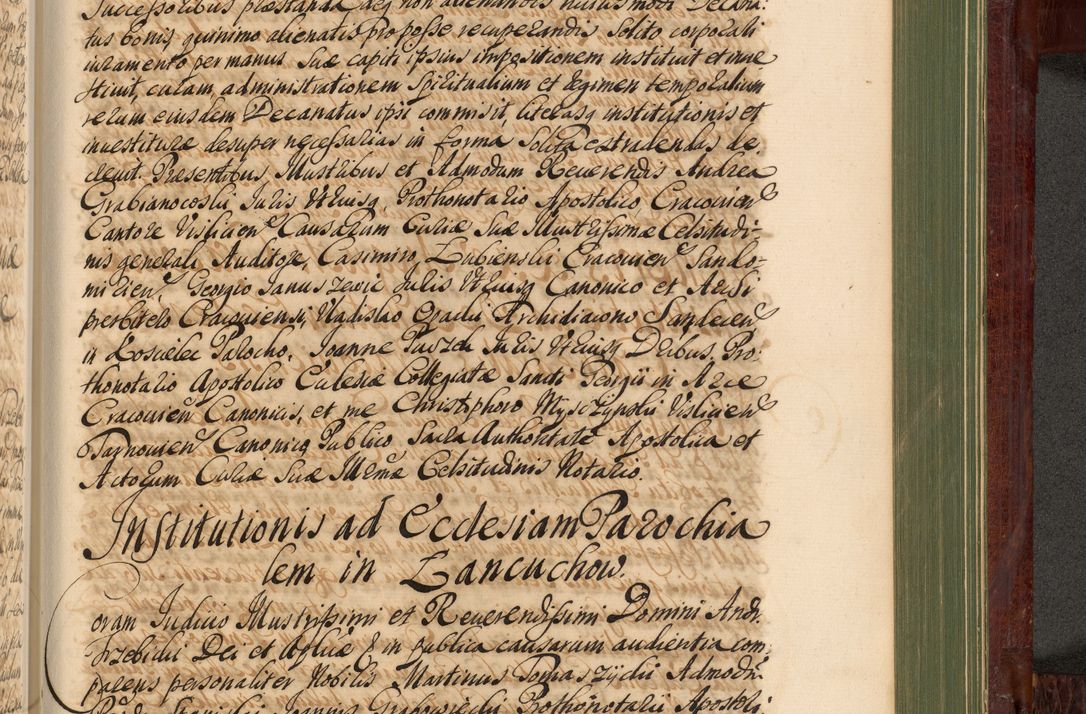 Successoribus præstanda deq non alienandis huiusmodi Decana:
tus bonis quinimo alienatis pro posse recuperandis solito corporali
iuramento per manus suæ capiti ipsius impositionem instituit et inue
stiuit, curam, administrationem Spiritualium et Regimen temporalium
rerum eiusdem Decanatus ipsi commisit, literasq institutionis et
inuestituræ desuper necessarias in forma solita extradendas de,
creuit. Præsentibus Illustribus et Admodum Reuerendis Andrea
Grabianocoski Juris Vtriusq, Prothonotario Apostolico, Cracouien
Cantore Vislicien Causarum Curiæ Suæ Illustrissimæ Celsitudi-
nis generali Auditore, Casimiro, Lubienski Cracouien Sando-
mirien, Georgio Januszewic Juris Vtriusq Canonico et Archi
presbitero Cracouiensi, Vladislao Opacki Archidiacono Sandecen
in Koscielec Parocho, Joanne Juris Vtriusq Dribus, Pro:
thonotario Apostolico Ecclesiæ Collegiatæ Sancti Georgii in Arce
Cracouien Canonicis, et me Christophoro Myszzynski Vislicien
Tarnouien Canonico Publico Sacra Authoritate Apostolica et
Actorum Curiæ Suæ Illmæ Celsitudinis Notario.
Institutionis ad Ecclesiam Parochia
lem in Lancuchow.
Coram Judicio Illustrissimi et Reuerendissimi Domini Andr.
Trzebicki Dei et Aplicæ in publica causarum audientia com,
parens personaliter Nobilis Martinus Tomaszycki Admodum
Joannis Grabowiecki Prothonotarii Apostoli